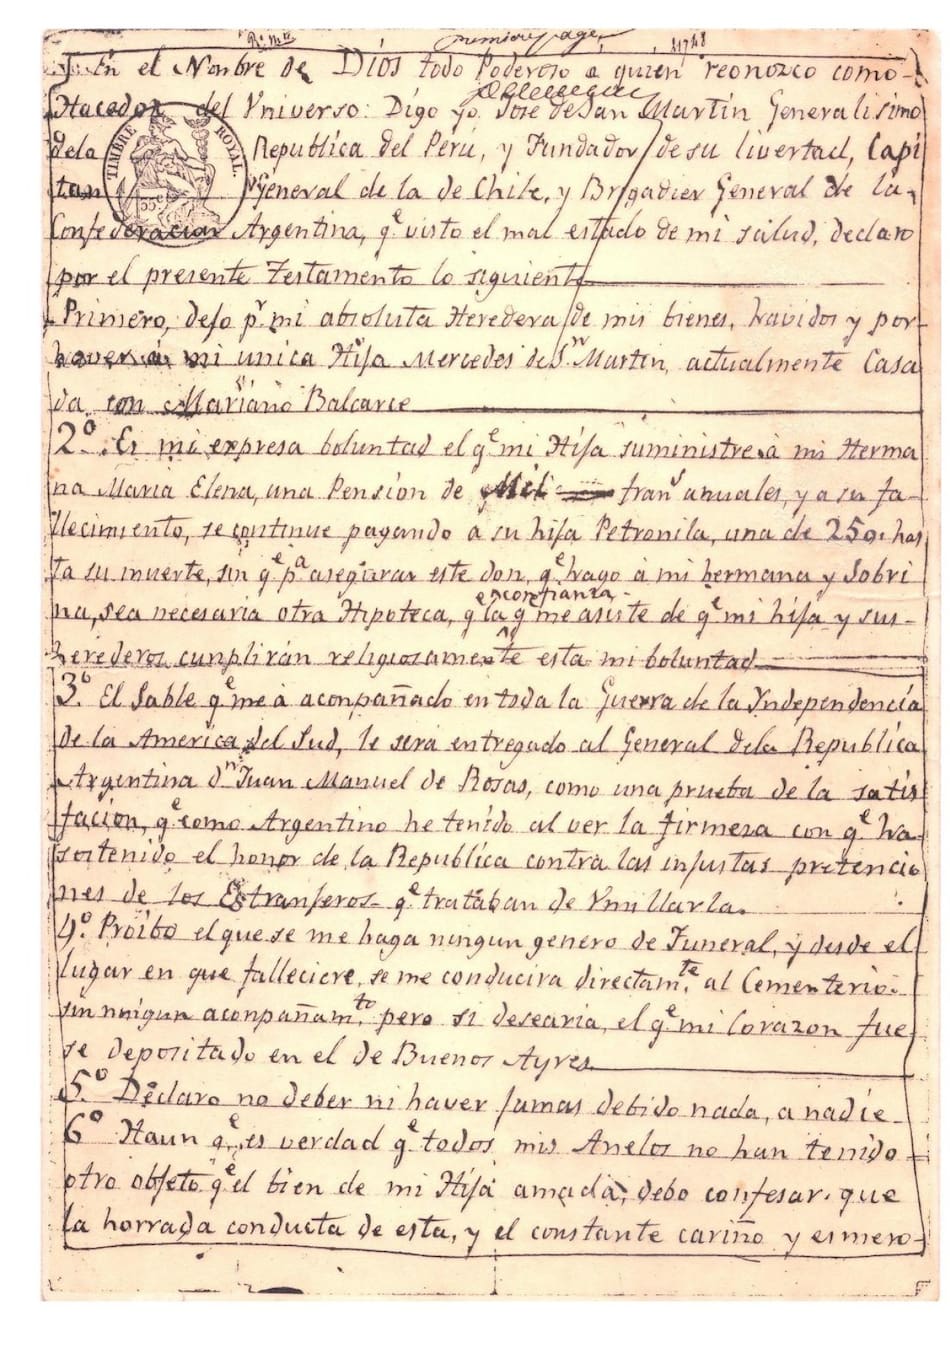 premiere page
En el Nonbre de Dios todo Poderoso a quien reonozco como
Hacedor del Vniverso: Digo yo Jose de San Martin Generalisimo
dela Republica del Perú, y Fundador de su livertad, Capi
tan General de la de Chile, y Brigadier General de la
Confederacion Argentina, qe. visto el mal estado de mi salud, declaro
por el presente Testamento lo siguiente
Primero, dejo pr. mi absoluta Heredera de mis bienes, havidos y por
haver á mi unica Hija Mercedes de Sn. Martin, actualmente Casa
da con Mariano Balcarce
2º. Es mi expresa boluntad el qe. mi Hija suministre á mi Herma
na Maria Elena, una Pension de Mil frans anuales, y a su fa-
llecimiento, se continue pagando a su hija Petronila, una de 250, has
ta su muerte, sin qe. pa. asegurar este don, qe. hago á mi hermana y Sobri
na, sea necesaria otra Hipoteca, qe la confianza q me asiste de qe. mi hija y sus-
herederos cunplirán religiosamente esta mi boluntad
3º. El Sable qe. me á aconpañado en toda la Guerra de la Yndependencia
de la America del Sud, le será entregado al General dela Republica
Argentina dn. Juan Manuel de Rosas, como una prueba de la satis
facion, qe. como Argentino he tenido al ver la firmeza con qe. ha
sostenido el honor de la Republica contra las injustas pretencio
nes de los Estranjeros qe. tratában de Vmillarla.
4º. Proibo el que se me haga ningun genero de Funeral, y desde el
lugar en que falleciere, se me conducira directamte. al Cementerio
sin ningun aconpañamto. pero si desearia, el qe. mi Corazon fue-
se depositado en el de Buenos Ayres
5º. Declaro no deber ni haver jamas debido nada, a nadie
6º Haun qe. es verdad qe. todos mis Anelos no han tenido
otro objeto qe. el bien de mi Hija amada, debo confesar, que
la horrada conducta de esta, y el constante cariño y esmero
TIMBRE ROYAL